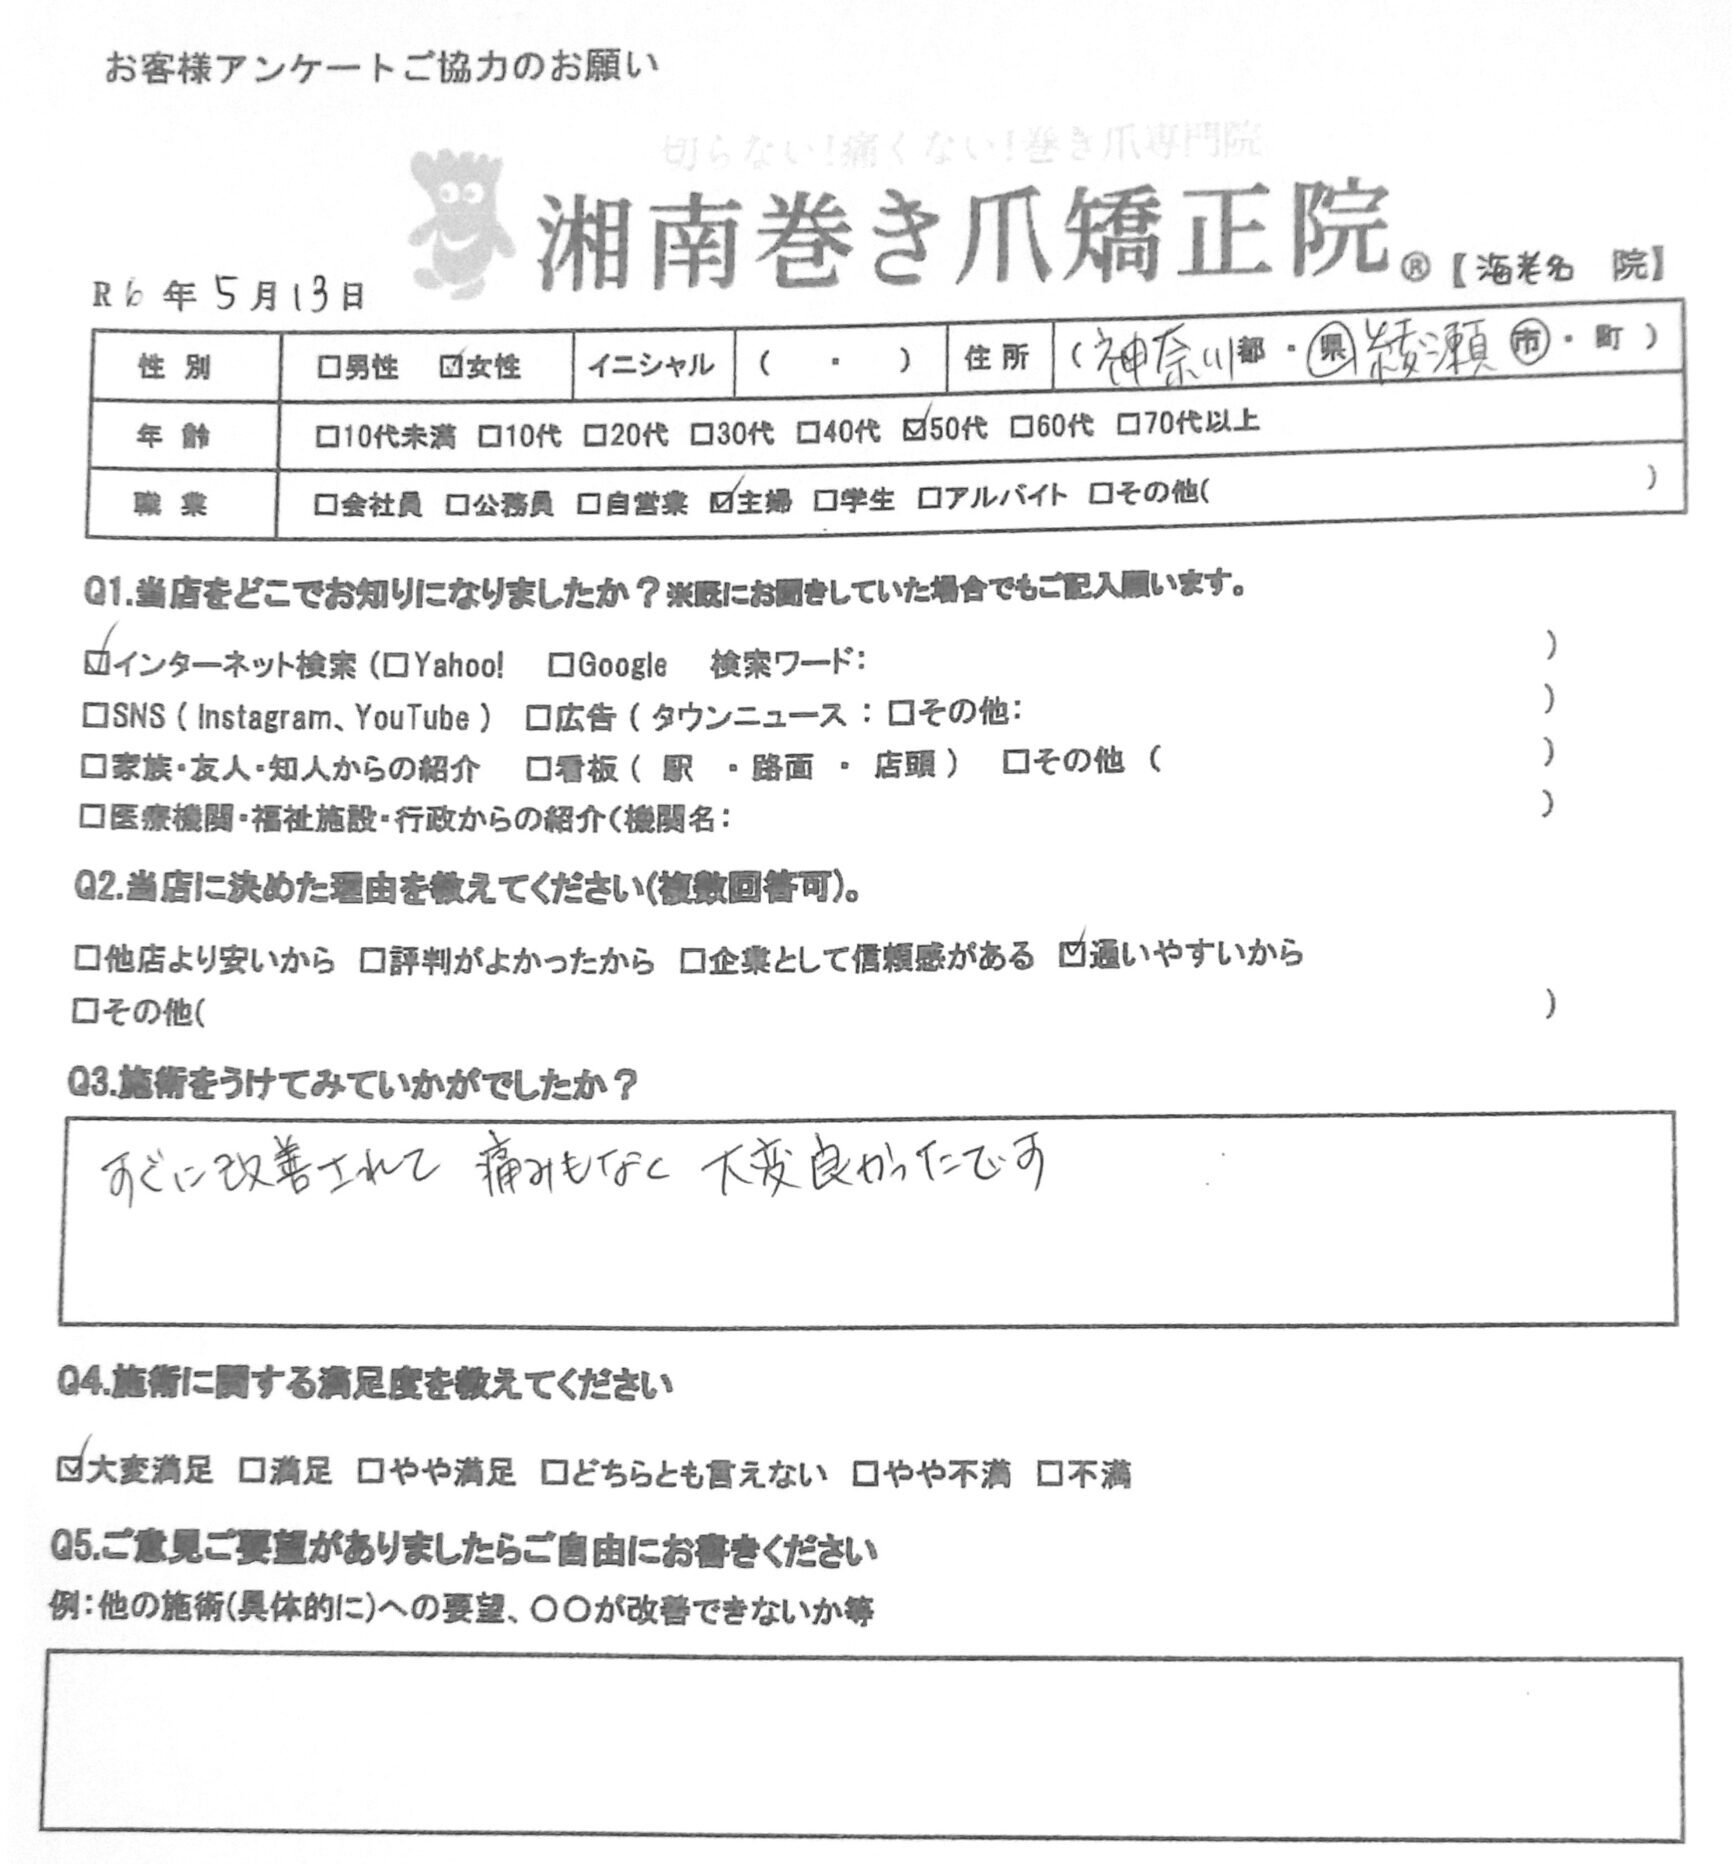 お客様アンケートご協力のお願い
切らない!痛くない!巻き爪専門院
湘南巻き爪矯正院®【海老名 院】
R6年5月13日
性別 □男性 ☑女性 イニシャル ( ・ ) 住所 (神奈川都・県 綾瀬市・町)
年齢 □10代未満 □10代 □20代 □30代 □40代 ☑50代 □60代 □70代以上
職業 □会社員 □公務員 □自営業 ☑主婦 □学生 □アルバイト □その他( )
Q1.当店をどこでお知りになりましたか?※既にお聞きしていた場合でもご記入願います。
☑インターネット検索 (□Yahoo! □Google 検索ワード: )
□SNS ( Instagram、YouTube ) □広告 ( タウンニュース : □その他: )
□家族・友人・知人からの紹介 □看板 ( 駅 ・ 路面 ・ 店頭 ) □その他 ( )
□医療機関・福祉施設・行政からの紹介(機関名: )
Q2.当店に決めた理由を教えてください(複数回答可)。
□他店より安いから □評判がよかったから □企業として信頼感がある ☑通いやすいから
□その他( )
Q3.施術をうけてみていかがでしたか?
すぐに改善されて 痛みもなく 大変良かったです
Q4.施術に関する満足度を教えてください
☑大変満足 □満足 □やや満足 □どちらとも言えない □やや不満 □不満
Q5.ご意見ご要望がありましたらご自由にお書きください
例:他の施術(具体的に)への要望、〇〇が改善できないか等